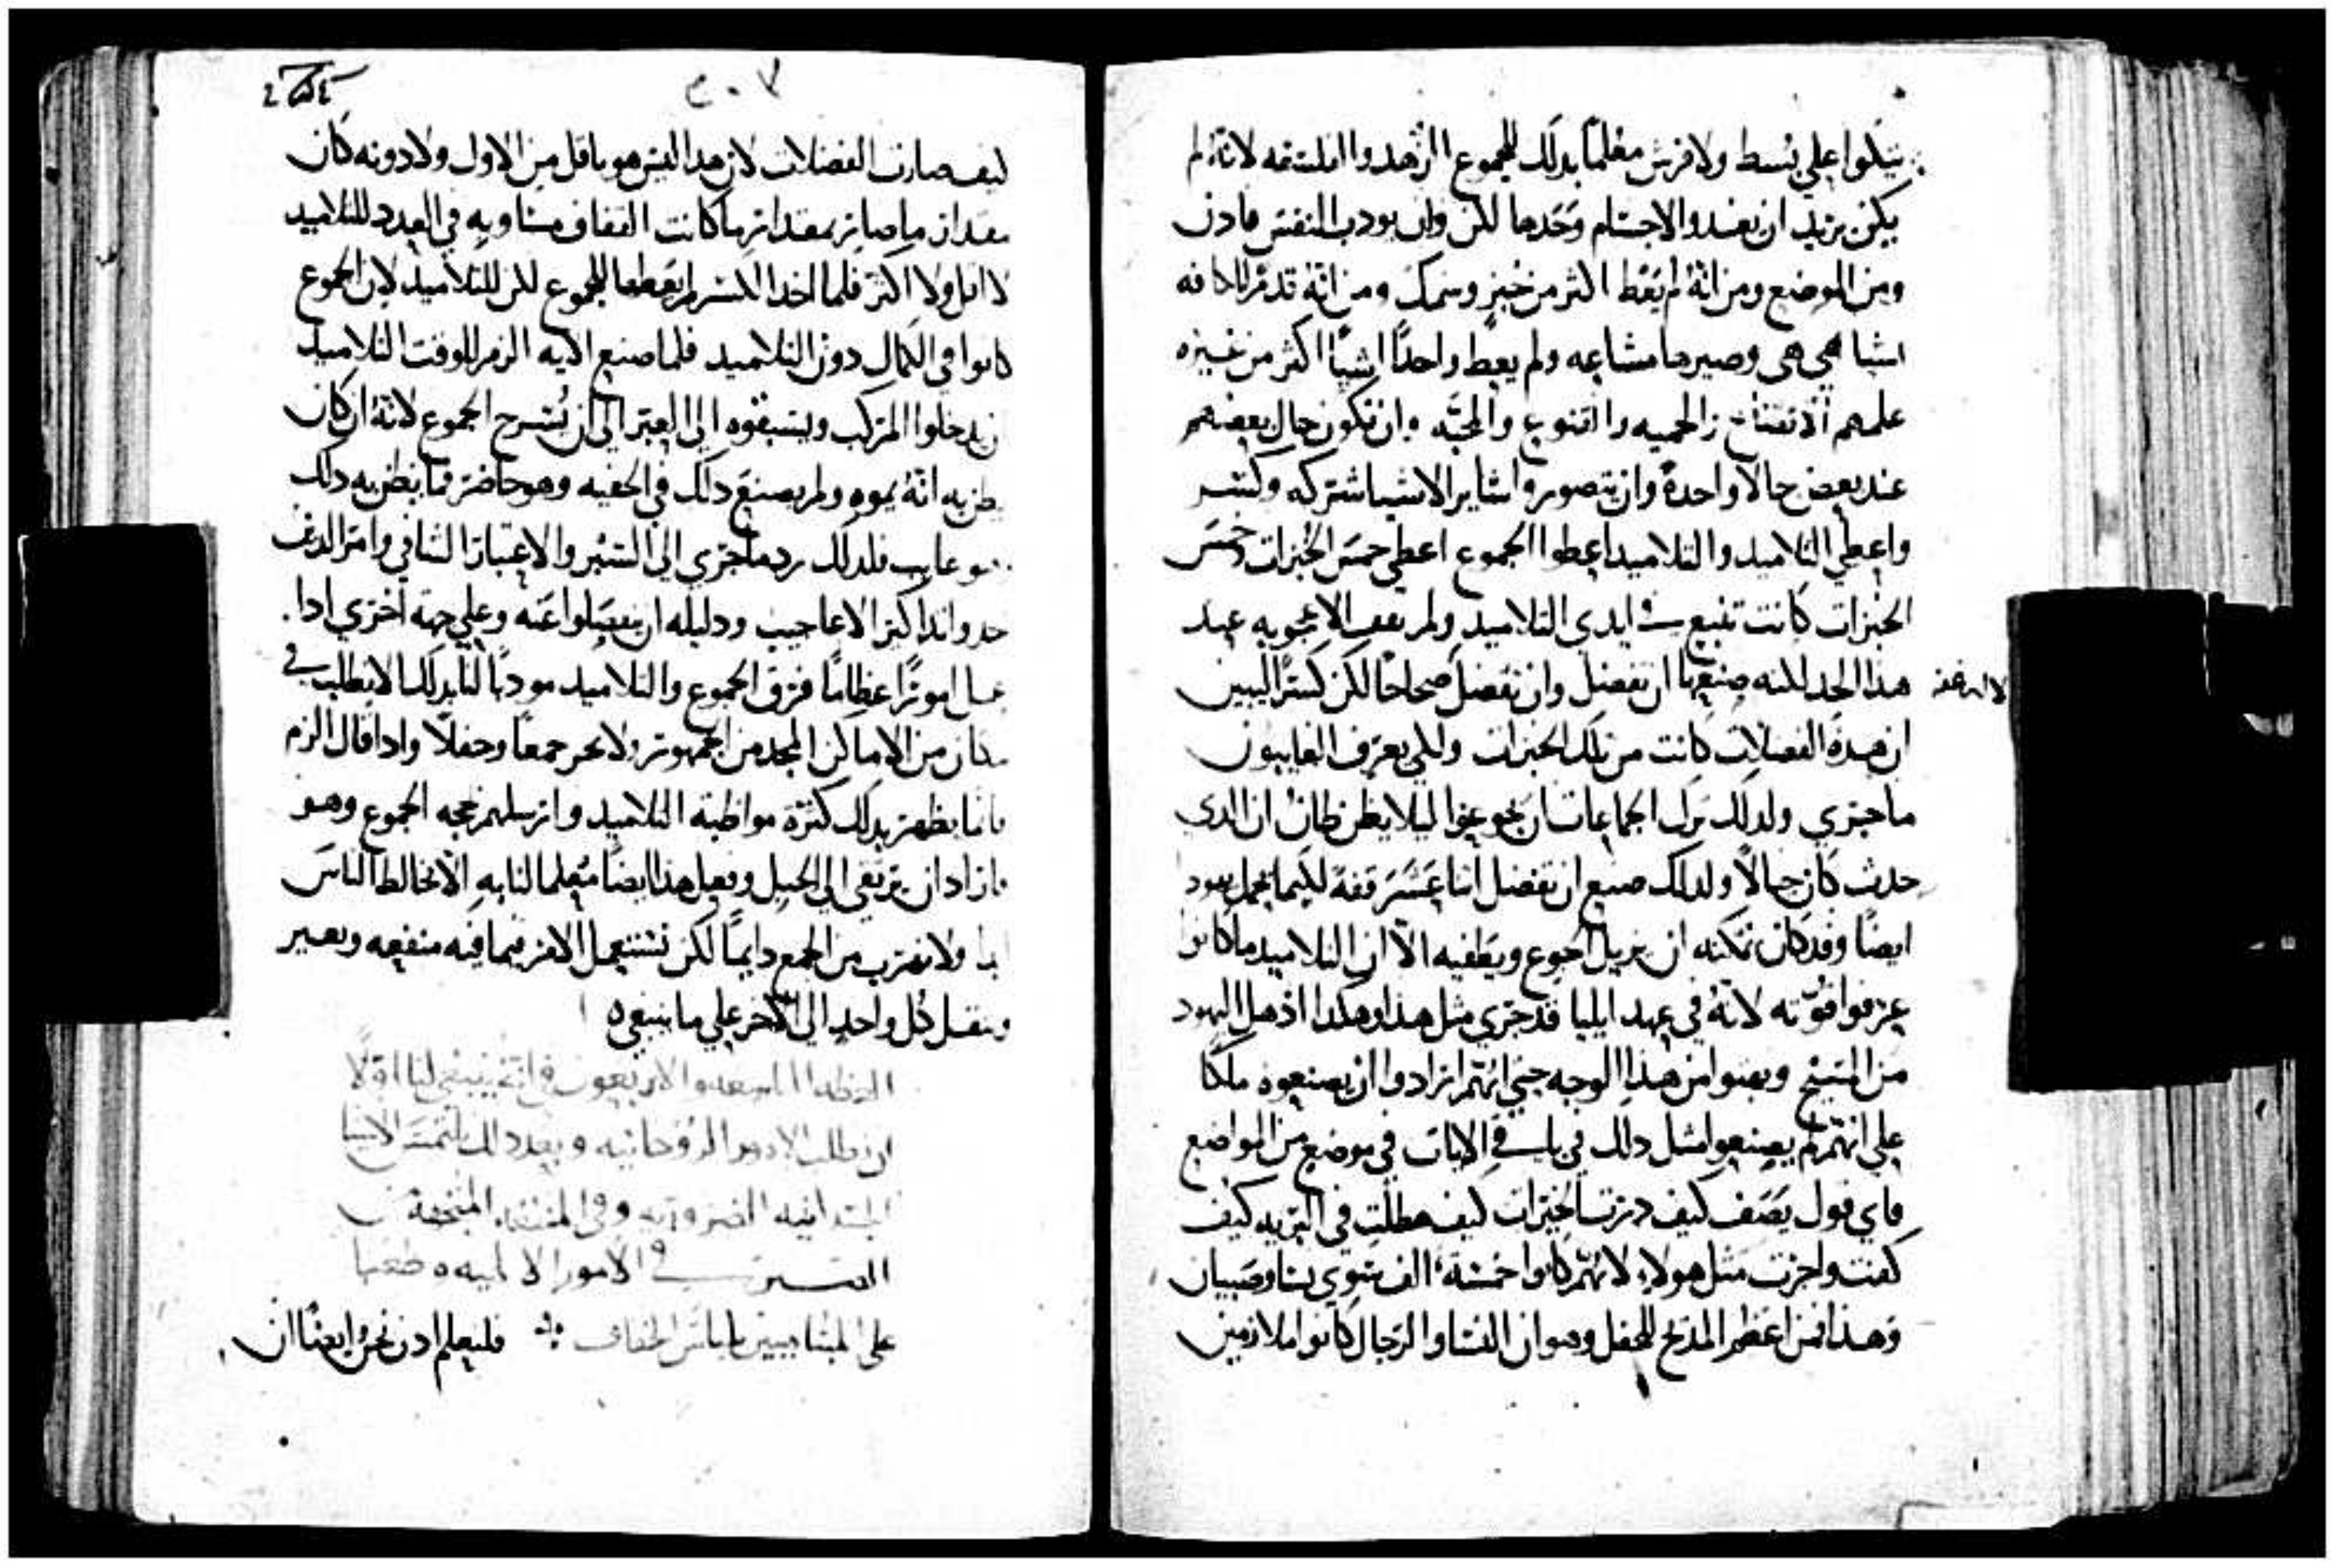 يتكوا علي بسط ولا فرش معلما بدلك للجموع الزهد والفلسفه لانه لم
يكن يريد ان يغدو الاجسام وحدها لكن وان يودب النفس فادن
ومن الموضع ومن انه لم يعط اكثر من خبز وسمك ومن انه قدم للكافه
اشيا هي هي وصيرها مشاعه ولم يعط واحدا شيا اكثر من غيره
علمهم الاتضاع والحميه والقنوع والمحبه وان تكون حال بعضهم
عند بعض حالا واحدة وان يتصوروا ساير الاشيا شركه وكسر
واعطي التلاميد والتلاميد اعطوا الجموع اعطي خمس الخبزات وخمس
الخبزات كانت تنبع في ايدي التلاميد ولم تقف الاعجوبه عند
هدا الحد لكنه صنع ان تفضل وان تفضل صحاحا لكن كسرا ليبين
ان هده الفضلات كانت من تلك الخبزات ولكي يعرف الغايبون
ما جري ولدلك ترك الجماعات ان يجوعوا ليلا يظن ظان ان الدي
حدث كان خيالا ولدلك صنع ان تفضل اثنا عشر قفه لكيما يحمل يهودا
ايضا وقد كان تمكنه ان يزيل الجوع ويطفيه الا ان التلاميد ما كانوا
عرفوا قوته لانه في عهد ايليا قد جري مثل هدا وهكدا ادهل اليهود
من المسيح وبهتوا من هدا الوجه حتي انهم ارادوا ان يصنعوه ملكا
علي انهم لم يصنعوا مثل دلك في باقي الايات في موضع من المواضع
فاي قول يصف كيف درت الخبزات كيف هطلت في البريه كيف
كفت واجزت مثل هولاء لانهم كانوا خمسة الف سوي نسا وصبيان
وهدا فمن اعظم المدح للحفل وهو ان النسا والرجال كانوا ملازمين
٢٠٧
كيف صارت الفضلات لان هدا ليس هو باقل من الاول ولا دونه كان
مقدار ما صاير بمقدار ما كانت القفاف مساويه في العدد للتلاميد
لا اقل ولا اكثر فلما اخد الكسر لم يعطها للجموع لكن للتلاميد لان الجموع
كانوا في الكمال دون التلاميد فلما صنع الايه الزم للوقت التلاميد
ان يدخلوا المركب ويسبقوه الي العبر الي ان يسرح الجموع لانه ان كان
يظن به انه يموه ولم يصنع دلك في الحقيه وهو حاضر فما يظن به دلك
وهو غايب فلدلك رد ما جري الي السبر والاعتبار الشافي وامر الدين
اخدوا تداكير الاعاجيب ودليله ان ينفصلوا عنه وعلي جهه اخري ادا
عمل امورا عظاما فرق الجموع والتلاميد مودبا لنا بدلك الا نطلب في
مكان من الاماكن المجد من الجمهور ولا نجر جمعا وحفلا وادا قال الزم
فانما يظهر بدلك كثرة مواظبة التلاميد وارسلهم بحجه الجموع وهو
فاراد ان يرتقي الي الجبل وفعل هدا ايضا معلما لنا به الا نخالط الناس
ابدا ولا نهرب من الجمع دايما لكن نستعمل الامر فيما فيه منفعه ونصير
وننقل كل واحد الي الاخر علي ما ينبغي ه
العظه التاسعه والاربعون في انه ينبغي لنا اولا
ان نطلب الامور الروحانيه وبعد دلك نلتمس الاشيا
الجسدانيه الضروريه
في الامور الالهيه ه وطعنا
علي المتباهيين بلباس الخفاف ❖ فليعلم ادن نحن ايضا ان